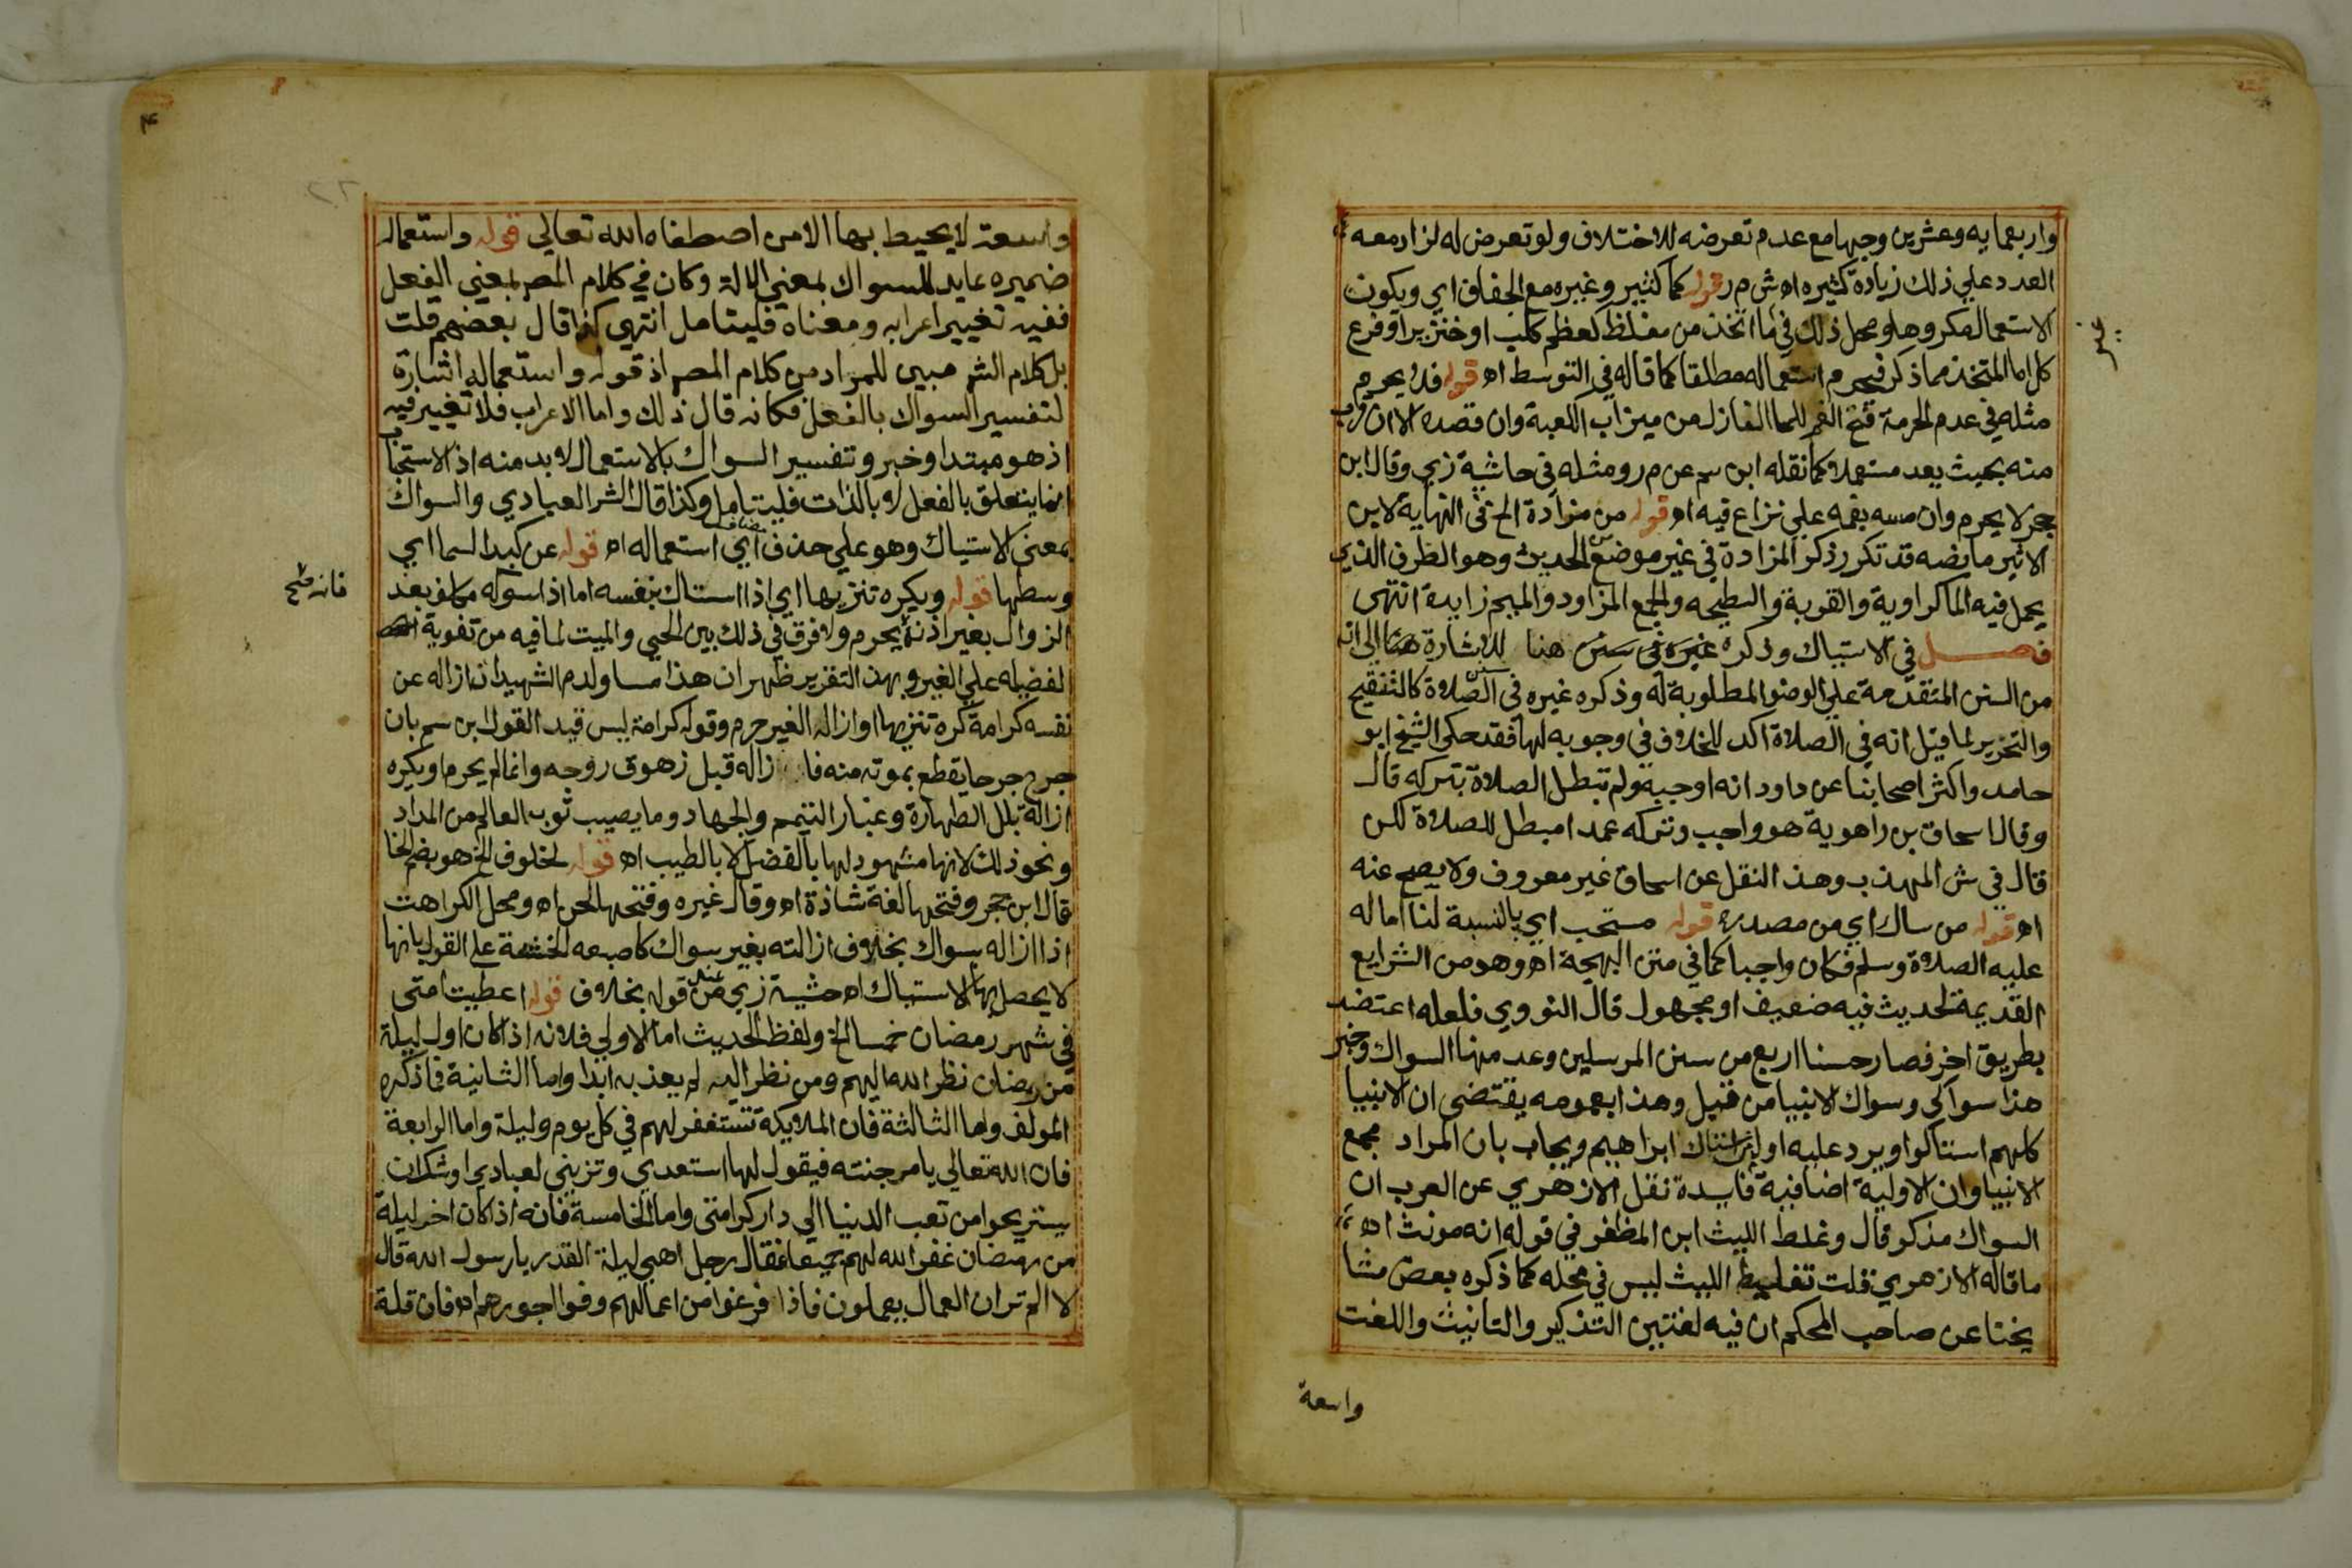 واربعمايه وعشرين وجها مع عدم تعرضه للاختلاف ولو تعرض له لزاد معه
العدد علي ذلك زيادة كثيره اه ش م ر قوله كما كثير وغيره مع الجفاف اي ويكون
الاستعمال مكروها ومحل ذلك في ما اتخذ من مغلظ كعظم كلب او خنزير او فرع
كل اما المتخذ مما ذكر فيحرم استعماله مطلقا كما قاله في التوسط اه قوله فلا يحرم
مثله في عدم الحرمة فتح الفم للما النازل من ميزاب الكعبة وان قصده الا ان قرب
منه بحيث يعد مستعملا كما نقله ابن سم عن م ر ومثله في حاشية زي وقال ابن
حجر لا يحرم وان مسه بفمه علي نزاع فيه اه قوله من مزادة الخ في النهاية لابن
الاثير ما نصه قد تكرر ذكر المزادة في غير موضع من الحديث وهو الظرف الذي
يحمل فيه الما كراوية والقربة والسطيحه والجمع المزاود والميم زايدة انتهى
فصل في الاستياك وذكره غيره في سنن هنا للاشارة هنا الي انه
من السنن المتقدمة علي الوضو المطلوبة له وذكره غيره في الصلاة كالتنقيح
والتحرير لما قيل انه في الصلاة اكد للخلاف في وجوبه لها فقد حكي الشيخ ابو
حامد واكثر اصحابنا عن داود انه اوجبه ولم تبطل الصلاة بتركه قال
وقال اسحاق بن راهوية هو واجب وتركه عمدا مبطل للصلاة لكن
قال في ش المهذب وهذا النقل عن اسحاق غير معروف ولا يصح عنه
اه قوله من ساك اي من مصدره قوله مستحب اي بالنسبة لنا اما له
عليه الصلاة وسلم فكان واجبا كما في متن البهجة اه وهو من الشرايع
القديمة لحديث فيه ضعيف او مجهول قال النووي فلعله اعتضد
بطريق اخر فصار حسنا اربع من سنن المرسلين وعد منها السواك وخبر
هذا سواكي وسواك الانبيا من قبلي وهذا بعمومه يقتضي ان الانبيا
كلهم استاكوا ويرد عليه اول من استاك ابراهيم ويجاب بان المراد مجمع
الانبيا وان الاولية اضافية فايدة نقل الازهري عن العرب ان
السواك مذكر قال وغلط الليث ابن المظفر في قوله انه مونث اه
ما قاله الازهري قلت تغليط الليث ليس في محله كما ذكره بعض مشا
يخنا عن صاحب المحكم ان فيه لغتين التذكير والتانيث واللغت
واسعة
واسعة لا يحيط بها الا من اصطفاه الله تعالي قوله واستعماله
ضميره عايد للسواك بمعني الالة وكان في كلام المصر بمعني الفعل
ففيه تغيير اعرابه ومعناه فليتامل انتهي كذا قال بعضهم قلت
بل كلام الشر مبين للمراد من كلام المصر اذ قوله واستعماله اشارة
لتفسير السواك بالفعل فكانه قال ذلك واما الاعراب فلا تغيير فيه
اذ هو مبتدا وخبر وتفسير السواك بالاستعمال لا بد منه اذ الاستحباب
انما يتعلق بالفعل لا بالذات فليتامل وكذا قال الشر العبادي والسواك
بمعنى الاستياك وهو علي حذف مضاف اي استعماله اه قوله عن كبد السما اي
وسطها قوله ويكره تنزيها اي اذا استاك بنفسه اما اذا سوكه مكلف بعد
الزوال بغير اذنه يحرم ولا فرق في ذلك بين الحي والميت لما فيه من تفوية
لفضيله علي الغير وبهذا التقرير ظهر ان هذا مساو لدم الشهيد ان ازاله عن
نفسه كرامة كره تنزيها او ازاله الغير حرم وقوله كرامة ليس قيد القول ابن سم بان
جرح جرحا يقطع بموته منه فازاله قبل زهوق روحه وانما لم يحرم او يكره
ازالة بلل الطهارة وغبار التيمم والجهاد وما يصيب ثوب العالم من المداد
ونحو ذلك لانها مشهود لها بالفضل لا بالطيب اه قوله لخلوف الخ هو بضم الخا
قال ابن حجر وفتحها لغة شاذة اه وقال غيره وفتحها لحن اه ومحل الكراهت
اذا ازاله بسواك بخلاف ازالته بغير سواك كاصبعه الخشنة علي القول بانها
لا يحصل بها الاستياك اه حشية زي من عند قوله بخلاف قوله اعطيت امتي
في شهر رمضان خمسا الخ ولفظ الحديث اما الاولي فلانه اذا كان اول ليلة
من رمضان نظر الله اليهم ومن نظر اليه لم يعذب به ابدا واما الثانية فما ذكره
المولف واما الثالثة فان الملايكة تستغفر لهم في كل يوم وليلة واما الرابعة
فان الله تعالي يامر جنته فيقول لها استعدي وتزيني لعبادي اوشك ان
يستريحوا من تعب الدنيا الي دار كرامتي واما الخامسة فانه اذا كان اخر ليلة
من رمضان غفر الله لهم جميعا فقال رجل اهي ليلة القدر يا رسول الله قال
لا الم تر ان العمال يعملون فاذا فرغوا من اعمالهم وفوا اجورهم اه فان قلة